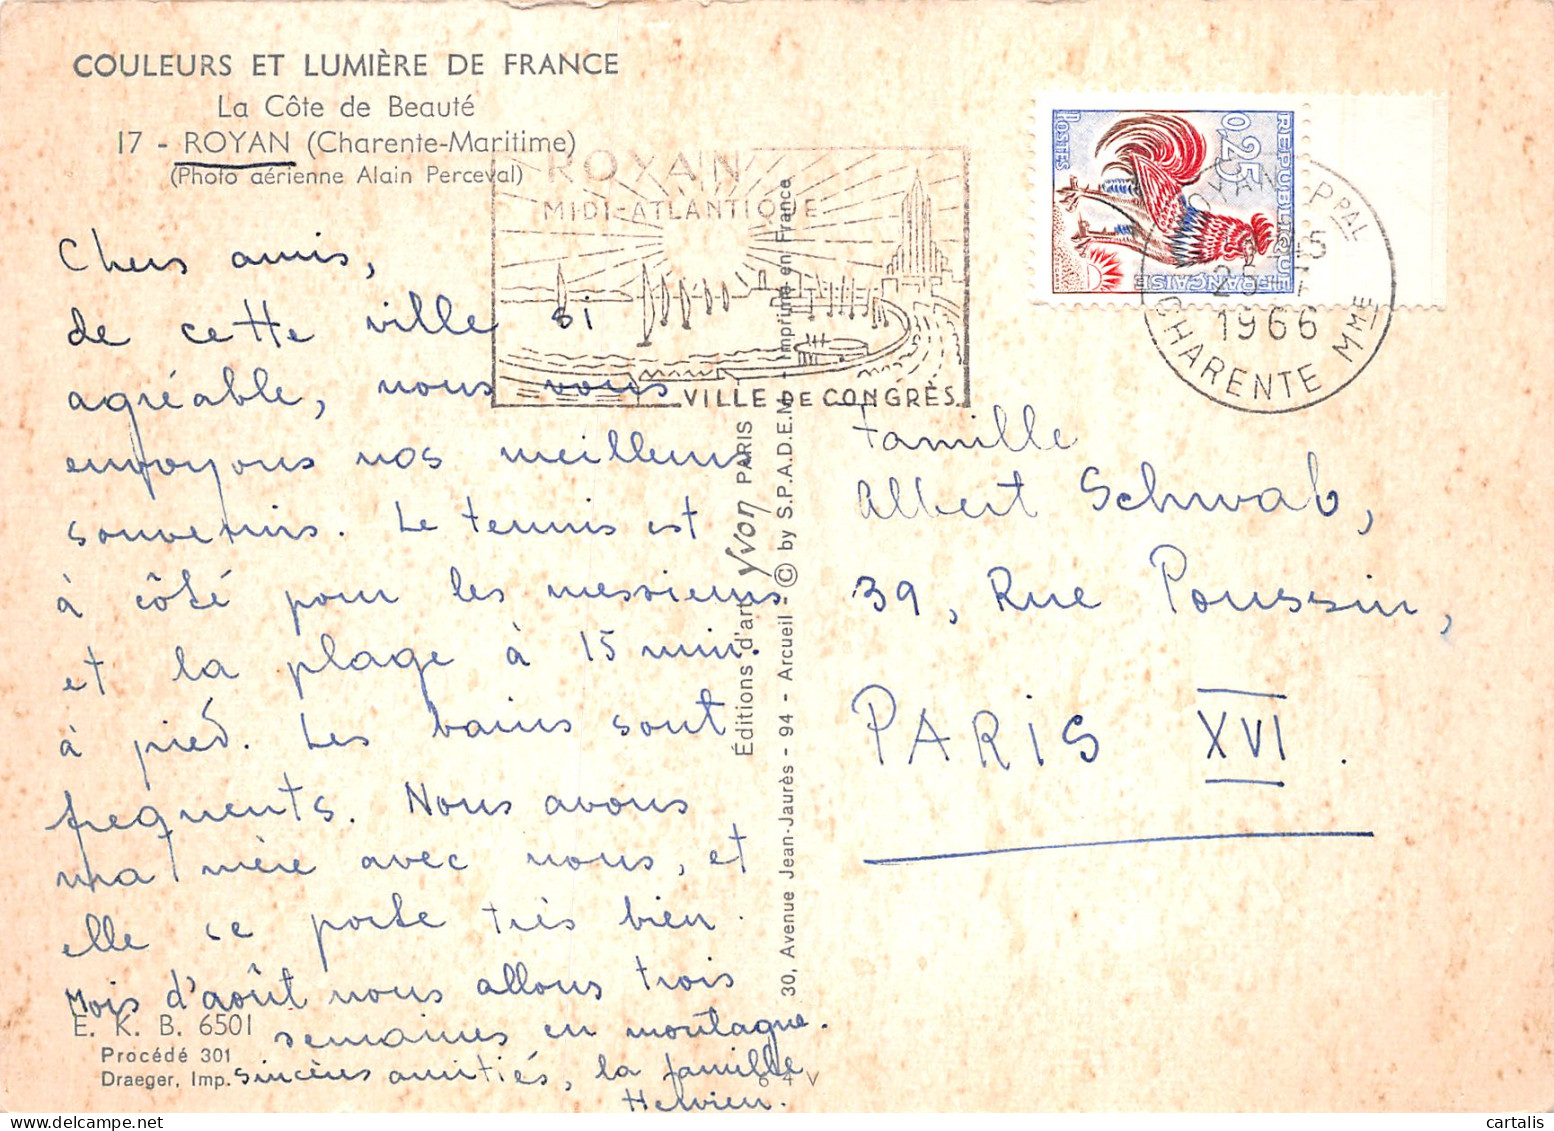 COULEURS ET LUMIÈRE DE FRANCE
La Côte de Beauté
17 - ROYAN (Charente-Maritime)
(Photo aérienne Alain Perceval)
Chers amis,
de cette ville si
agréable, nous vous
envoyons nos meilleurs
souvenirs. Le tennis est
à côté pour les messieurs
et la plage à 15 min.
à pied. Les bains sont
frequents. Nous avons
ma mère avec nous, et
elle se porte très bien.
Mois d'août nous allons trois
semaines en montagne.
sincères amitiés, la famille
E. K. B. 6501
Procédé 301
Draeger, Imp.
6 4 V
ROYAN
MIDI-ATLANTIQUE
VILLE DE CONGRÈS
Éditions d'art Yvon PARIS
30, Avenue Jean-Jaurès - 94 - Arcueil - © by S.P.A.D.E.M. - Imprimé en France
REPUBLIQUE FRANÇAISE
0,25
POSTES
ROYAN PPAL
1966
CHARENTE MME
Famille
Albert Schwab,
39, Rue Poussin,
PARIS XVI.
cartalis
delcampe.net